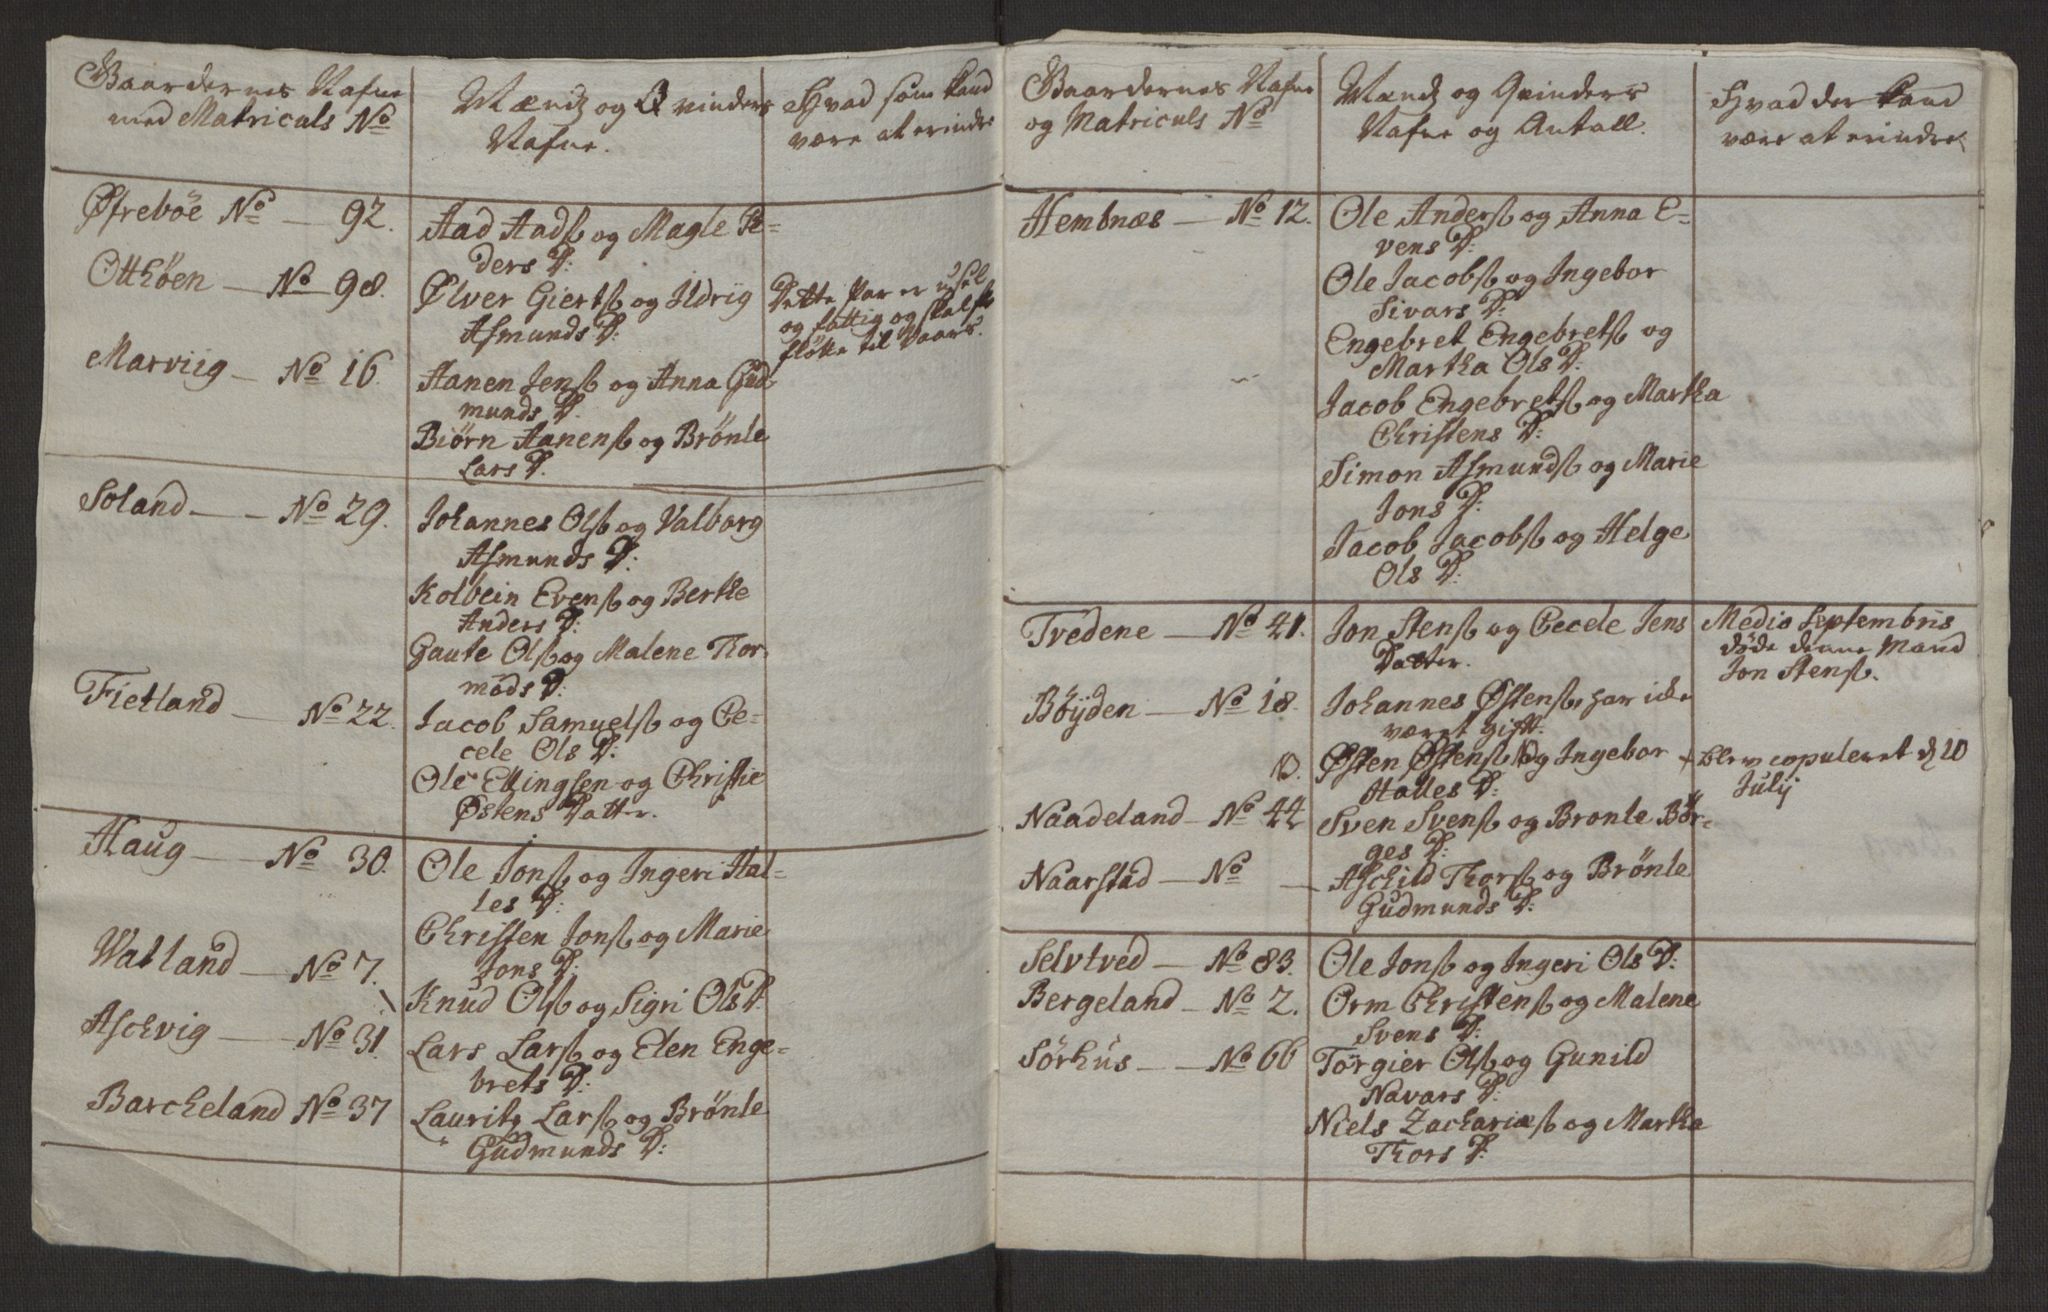 Gaardernes Nafne
med Matriculs No
Mændz og Qvinders
Nafne.
Hvad som kand
være at erindre
Øfreböe No 92.
Aad Aadsß og Magle Pe-
ders D:
Otthöen No 98.
Ølver Giertsß og Ildrig
Asmunds D:
Dette Par er usel
og fattig og skal
flötte til Vaars.
Marviig No 16
Aanen Jensß og Anna Gud
munds D.
Biörn Aanensß og Brönle
Lars D.
Soland No 29.
Johannes Olsß og Valborg
Asmunds D:
Kolbein Evensß og Berthe
Anders D:
Gaute Olsß og Malene Thor-
mods D:
Fietland No 22.
Jacob Samuelsß og Ce-
cele Ols D:
Ole Ellingsen og Christie
Østens Datter.
Haug No 30.
Ole Jonsß og Ingeri Hal-
les D:
Christen Jonsß og Marie
Jons D:
Watland No 7.
Knud Olsß og Sigri Ols D:
Aschvig No 31
Lars Larsß og Elen Enge-
brets D:
Barcheland No 37
Lauritz Larsß og Brönle
Gudmunds D:
Gaardernes Nafne
og Matriculs No
Mændz og Qvinders
Nafne og Antall.
Hvad der kand
være at erindre
Hembnæs No 12.
Ole Andersß og Anna E-
vens D:
Ole Jacobsß og Ingebor
Sivars D:
Engebret Engebretsß og
Martha Ols D:
Jacob Engebretsß og Martha
Christens D:
Simon Asmundsß og Marie
Jons D:
Jacob Jacobsß og Helge
Ols D:
Tvedene No 41.
Jon Stensß og Cecele Jens
Datter.
Medio Septembris
döde denne Mand
Jon Stensß.
Böÿden No 18.
Johannes Østensß, har icke
været gift.
Østen Østensß og Ingebor
Halles D:
+ blev copuleret d 10
July
Naadeland No 44
Sven Svensß og Bronle Bör-
ges D:
Naarstad No
Aschild Thorsß og Brönle
Gudmunds D:
Selvtved No 83.
Ole Jonsß og Ingeri Ols D:
Bergeland No 2.
Orm Christensß og Malene
Svens D:
Sörhus No 66
Torgier Olsß og Gunild
Navars D:
Niels Zachariæsß og Martha
Thors D: